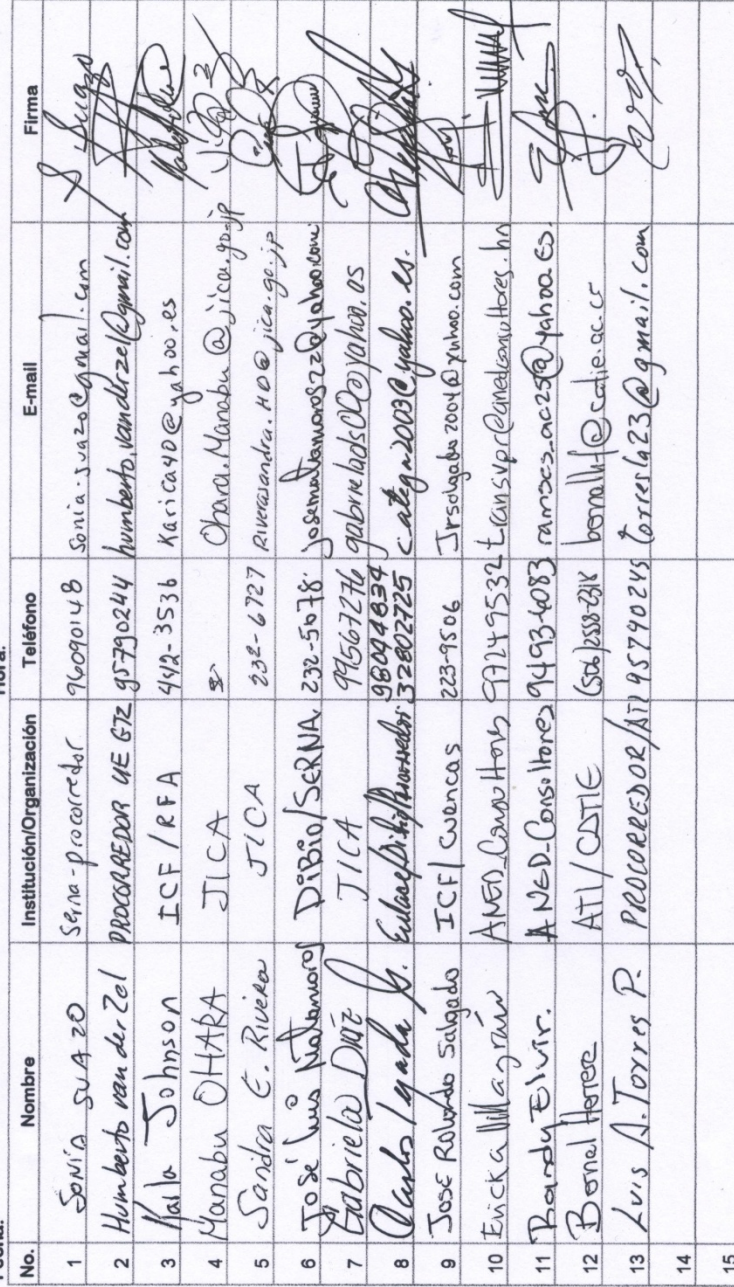 Fecha:
Hora:
No. Nombre Institución/Organización Teléfono E-mail Firma
1 Sonia SUAZO Serna-procorredor 96090148 Sonia.suazo@gmail.com S Suazo
2 Humberto van der Zel PROCORREDOR UE GTZ 95790244 humberto.vanderzel@gmail.com
3 Karla Johnson ICF/RFA 442-3536 Karica40@yahoo.es
4 Manabu OHARA JICA Ohara.Manabu@jica.go.jp
5 Sandra E. Rivera JICA 232-6727 Riverasandra.HO@jica.go.jp
6 José Luis Matamoros DiBio/SERNA 232-5078
7 Gabriela Diaz JICA 99567276 gabrielads00@yahoo.es
8 Carlos 98094834 32802725 categu2003@yahoo.es.
9 Jose Rolando Salgado ICF/Cuencas 223-9506 Jrsalgado2004@yahoo.com
10 Ericka ANED_Consultores 97249532
11 Randy Elvir. ANED_Consultores 9493-6083 ramses_ac25@yahoo.es.
12 ATI/CATIE
13 Luis A. Torres P. PROCORREDOR/ATI 95740245 torresla23@gmail.com
14
15